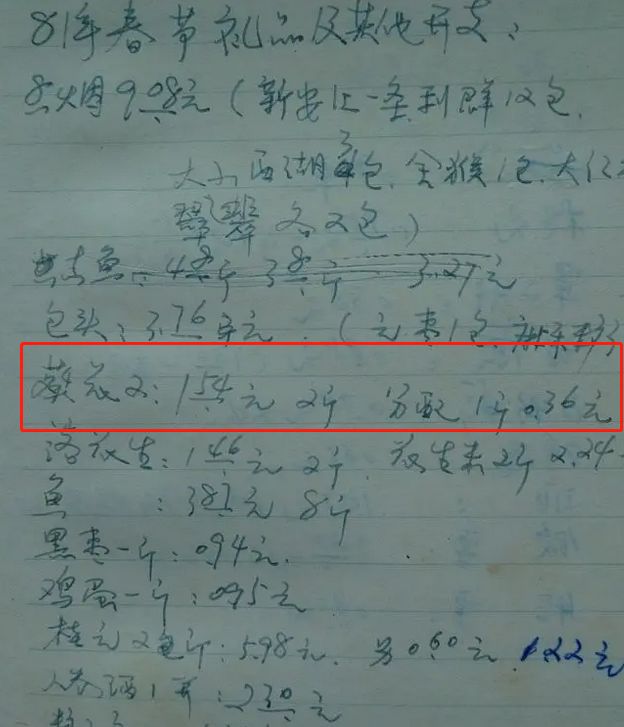 81年春节礼品及其他开支：
香烟9.08元（新安江一条利群12包，
大小西湖3包、金猴1包、大红
翡翠各2包）
斤 斤 3.27元
包头：3.76元（元枣1包、
葵花子：1.54元 2斤 另配1斤0.36元
落花生：1.46元 2斤，花生米2斤 2.24
鱼：3.83元 8斤
黑枣一斤：0.94元.
鸡蛋一斤：0.95元
桂元2包斤：5.98元. 另0.60元 1.22元
：2.30元